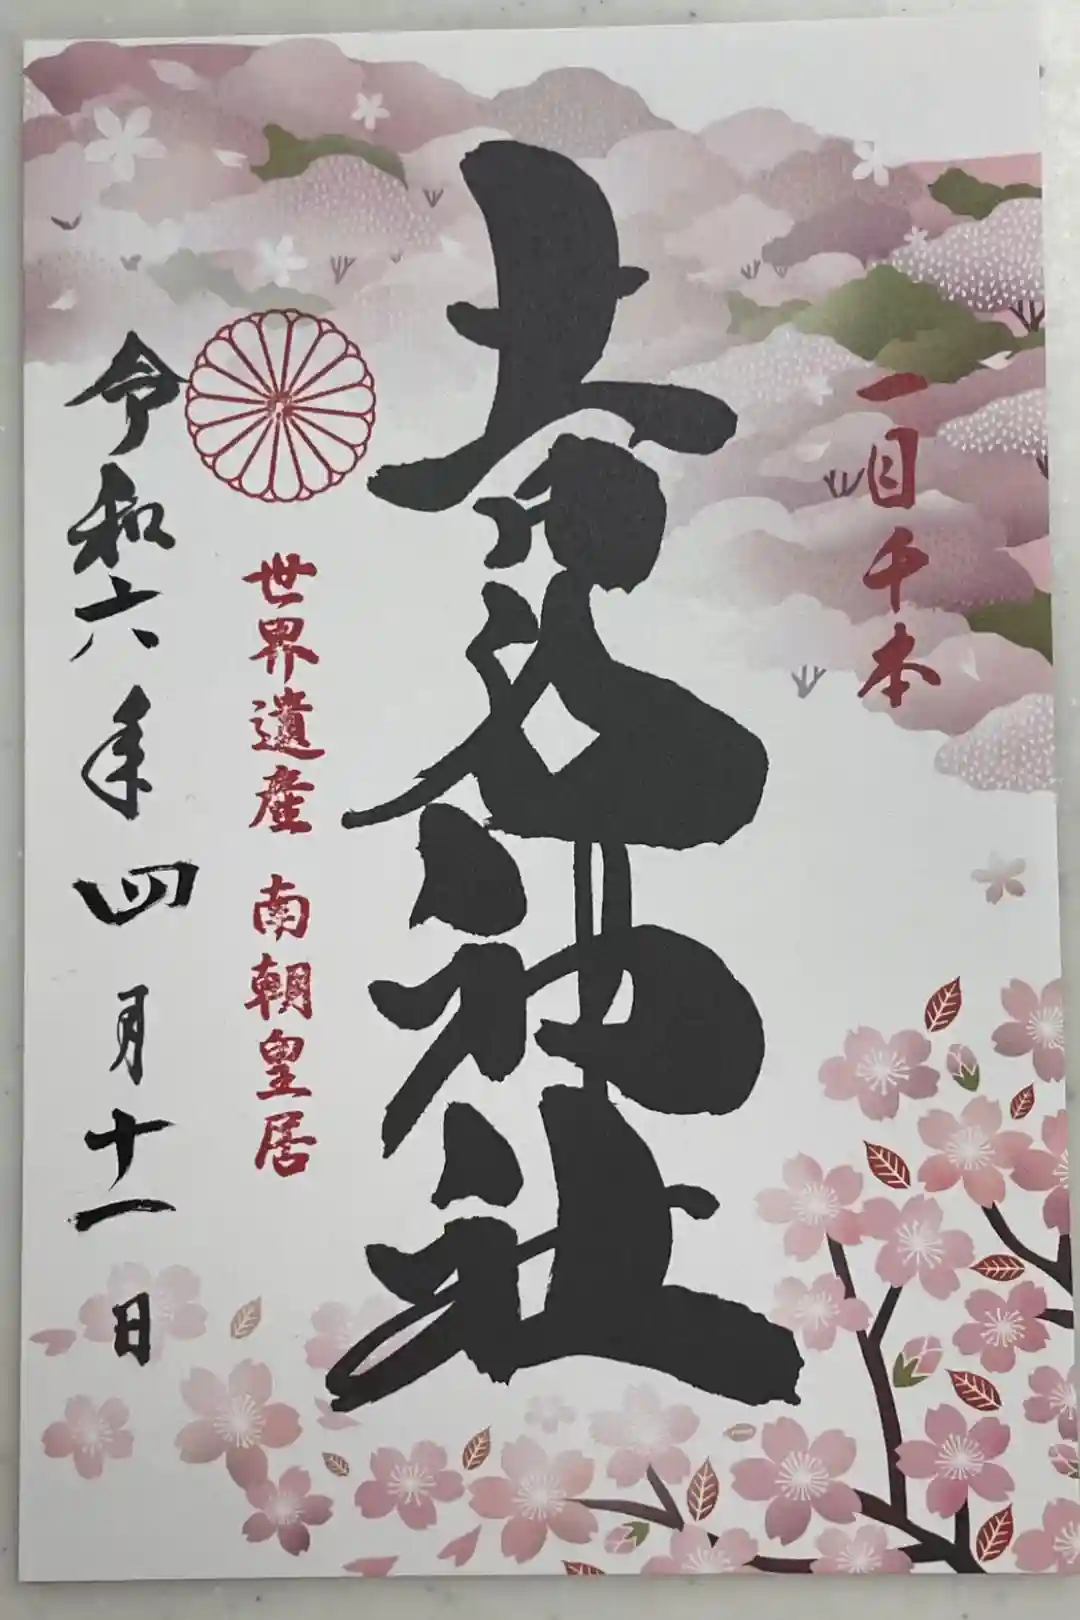 一目千本
吉水神社
世界遺産 南朝皇居
令和六年四月十一日